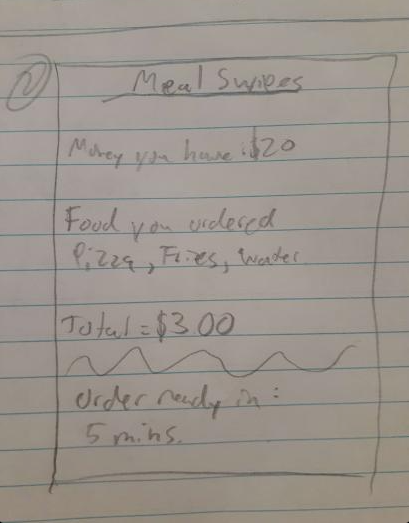 2
Meal Swipes
Money you have: $20
Food you ordered
Pizza, Fries, Water
Total = $3.00
order ready in:
5 mins.